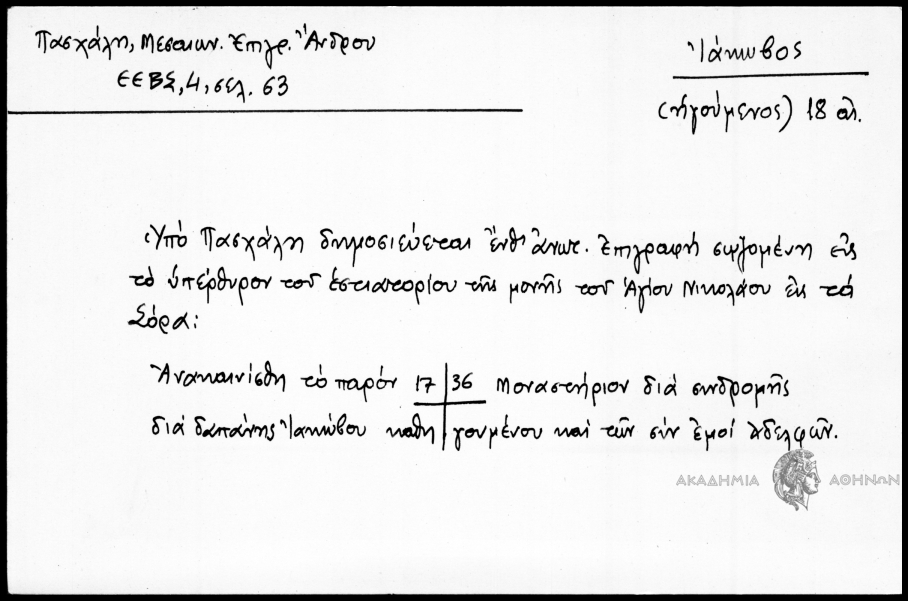 Πασχάλη, Μεσαιων. Ἐπιγρ. Ἄνδρου
ΕΕΒΣ, 4, σελ. 63
Ἰάκωβος
(ἡγούμενος) 18 αἰ.
Ὑπό Πασχάλη δημοσιεύεται ἔνθ' ἄνωτ. ἐπιγραφή σῳζομένη εἰς
τό ὑπέρθυρον τοῦ ἑστιατορίου τῆς μονῆς τοῦ Ἁγίου Νικολάου εἰς τά
Σόρα:
Ἀνακαινίσθη τό παρόν 17 36 Μοναστήριον διά συνδρομῆς
διά δαπάνης Ἰακώβου καθη γουμένου καί τῶν σύν ἐμοί ἀδελφῶν.
ΑΚΑΔΗΜΙΑ ΑΘΗΝΩΝ